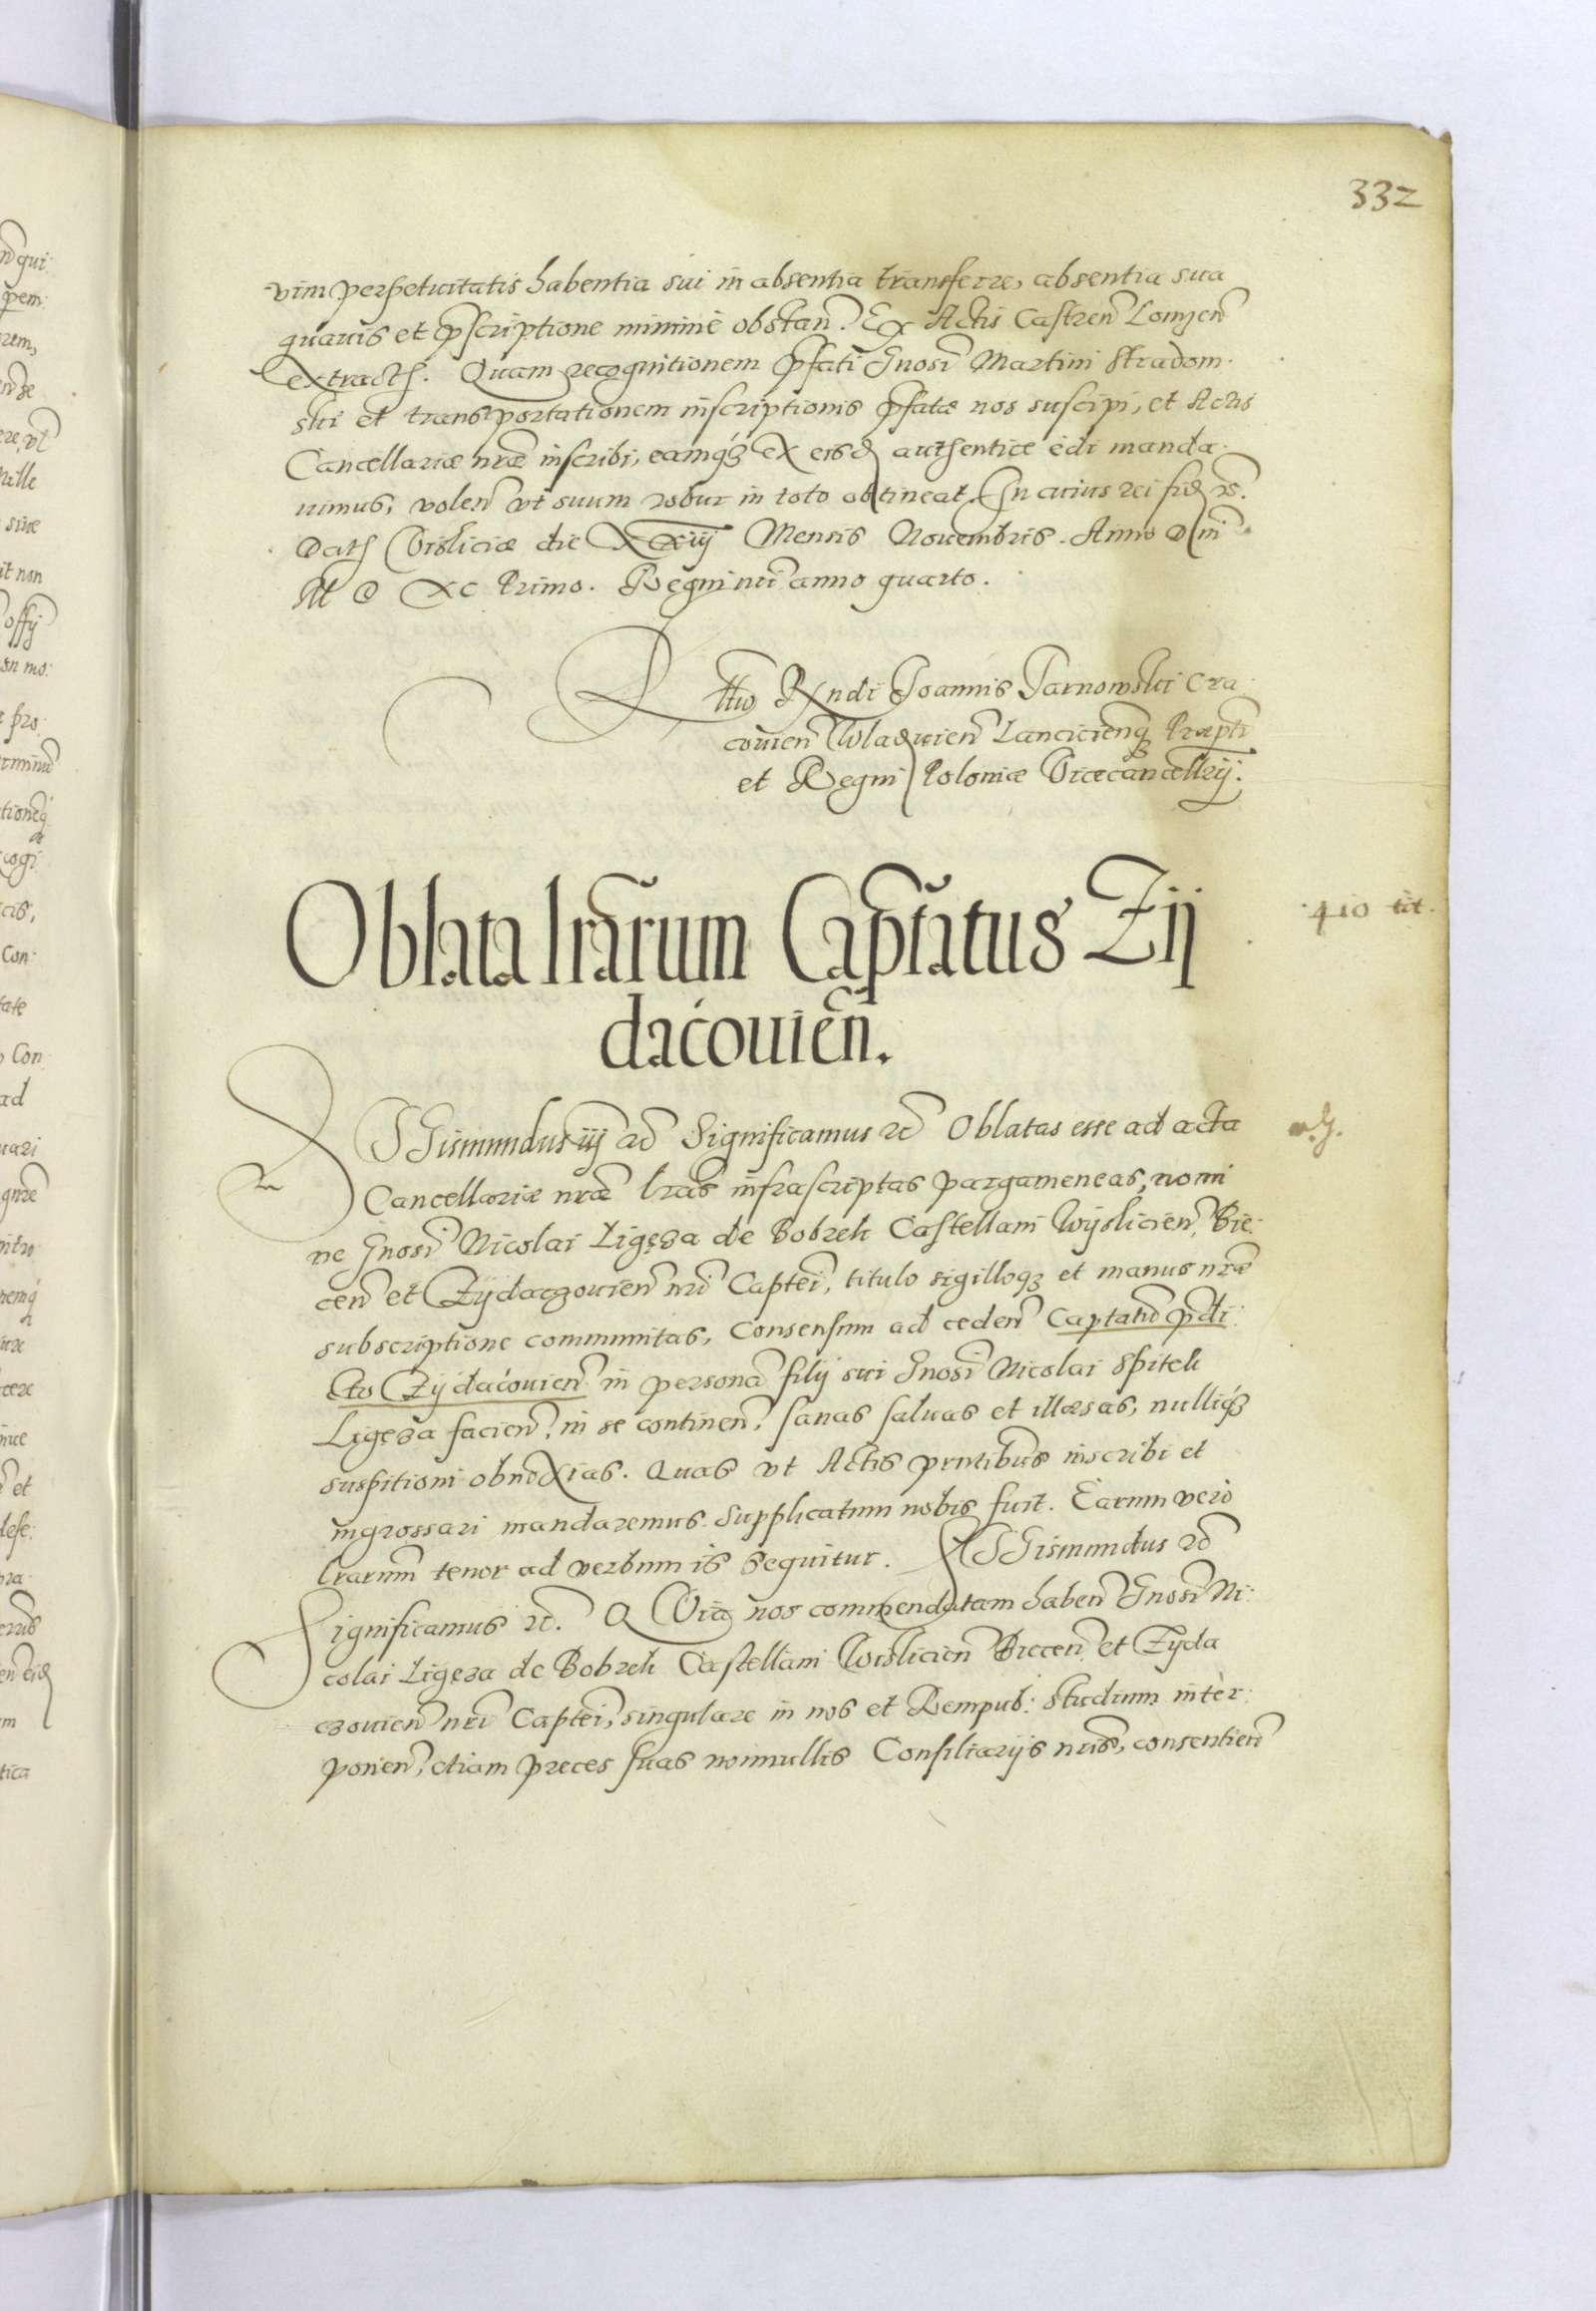 332
vim perpetuitatis habentia sui in absentia transferre, absentia sua
quauis et pscriptione minimè obstan. Ex Actis Castren Lomzen
extracth. Quam recognitionem pfati Gnosi Martini Stradom-
ski et transportationem inscriptionis pfatæ nos suscipi, et Actis
Cancellariæ nræ inscribi, eamq3 ex eisd authenticè edi manda-
uimus, volen vt suum robur in toto obtineat. In cuius rei fid rc.
Dath Visliciæ die XXiij Mensis Nouembris. Anno Dni
M D XC Primo. Regni nri anno quarto.
Rttio Rndi Joannis Tarnowski Cra-
couien Wladuien Lancicienq3 Præpti
et Regni Poloniæ Vicecancellrij.
Oblata lrarum Captatus Zij
daćouien.
410 tit.
SIGismundus iij rc Significamus rc Oblatas esse ad acta
Cancellariæ nræ lras infrascriptas pargameneas, nomi
ne Gnosi Nicolai Ligęza de Bobrek Castellani Wijslicien, Bie-
cen et Zijdaczouien nri Captei, titulo sigilloq3 et manus nræ
subscriptione communitas, Consensum ad ceden Captatu pdi-
cto Zijdaćouien in personã filij sui Gnosi Nicolai Spitek
Ligęza facien, in se continen, sanas saluas et illæsas, nulliq3
suspitioni obnoxias. Quas vt Actis pntibus inscribi et
ingrossari mandaremus supplicatum nobis fuit. Earum verò
lrarum tenor ad verbum is sequitur. SIGismundus rc
Significamus rc. Q Via nos commendatam haben Gnosi Ni-
colai Ligęza de Bobrek Castellani Wislicien Biecen et Zyda
czouien nri Captei, singulare in nos et Rempub: studium inter-
ponen, etiam preces suas nonnullis Consiliarijs nris, consentien